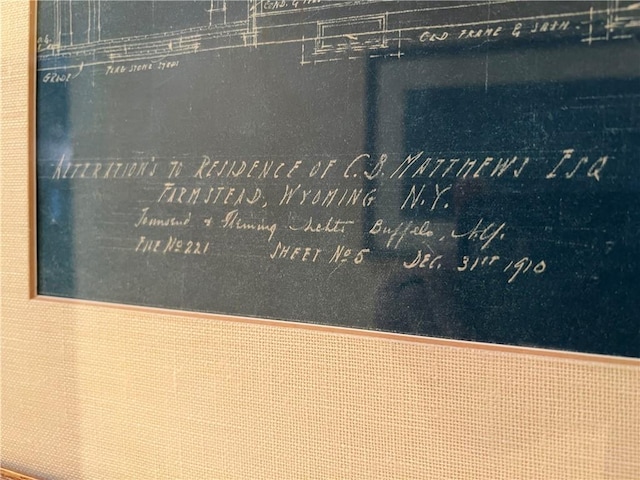 COND. &
OLD FRAME & SASH.
GRADE
FLAG STONE STEPS
ALTERATION'S TO RESIDENCE OF C.B. MATTHEWS ESQ
FARMSTEAD, WYOMING N.Y.
Townsend & Fleming Archts Buffalo, N.Y.
FILE No 221 SHEET No 5 DEC. 31ST 1910